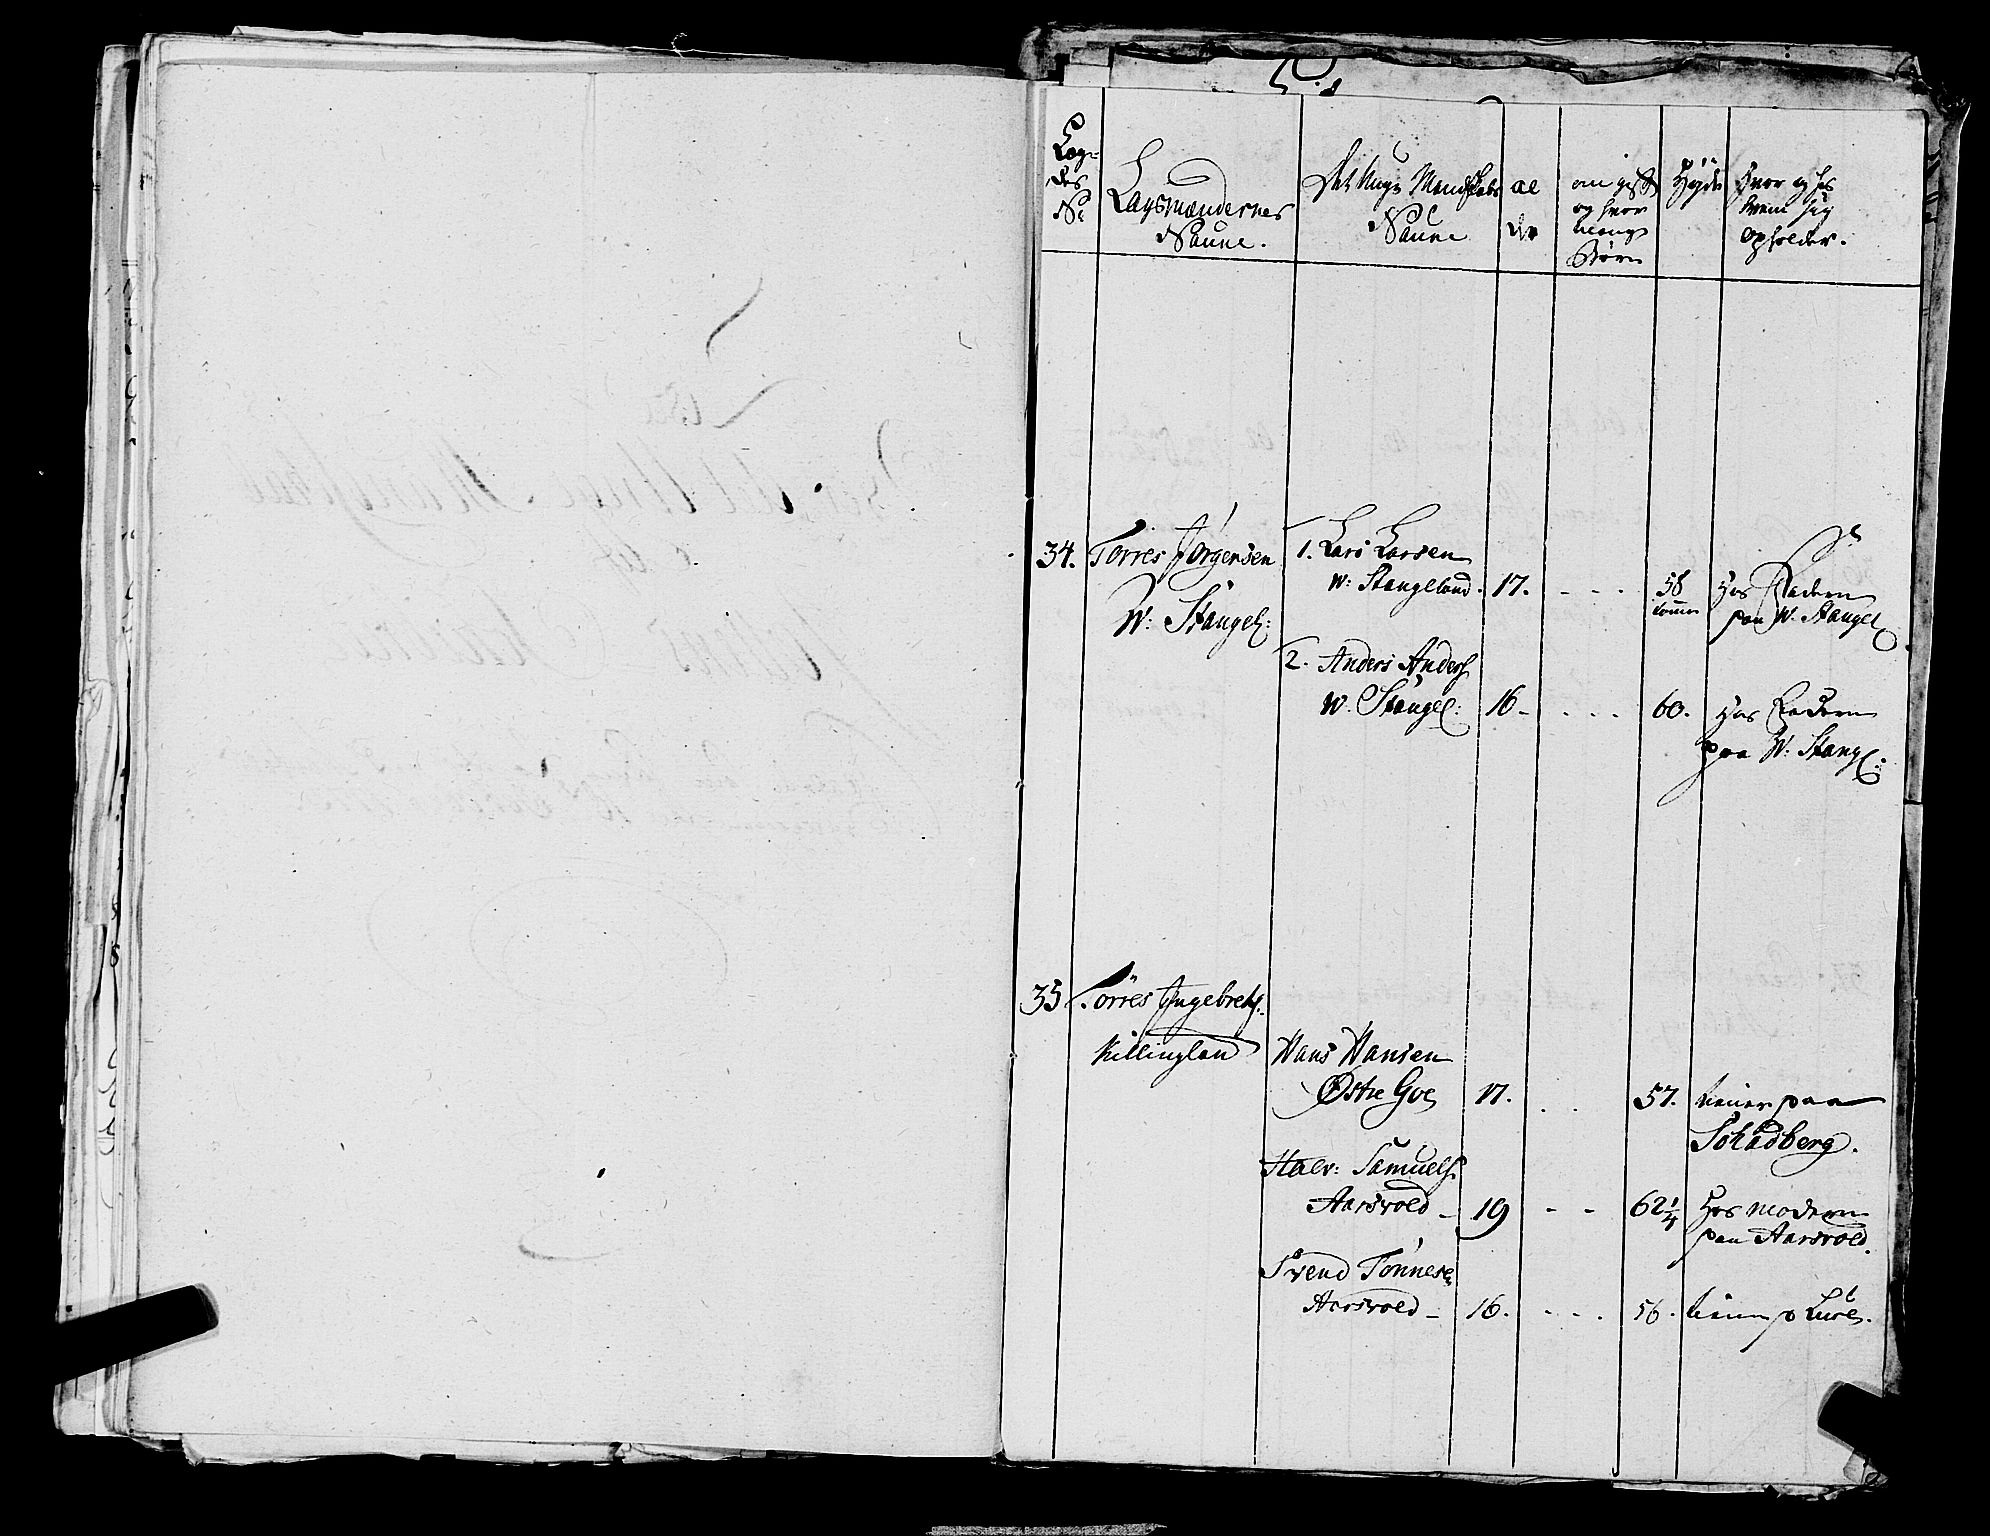 Læg-
des
No
Laugsmændernes
Naune.
Det Unge Mandskabs
Naune
al
der
om gift
og hvor
mange
Børn
Høyde
Hvor og hos
hvem sig
opholder.
34. Torres Jørgensen
W: Stangel:
1. Lars Larsen
W: Stangeland. 17. - - - 58 Hos Faderen
paa W. Stangel
2. Anders Anders
W. Stangel: 16 - . - - - 60. Hos Faderen
paa W: Stangl:
35 Torres Ingebrets:
Killingland
Hans Hansen
Østre Goe 17. . . 57. tiener paa
Schadberg.
Halv: Samuels.
Aarsvold - 19 - - 62 1/4 Hos moderen
paa Aarsvold.
Svend Tønnese
Aarsvold - 16. - - . 56. tiener p